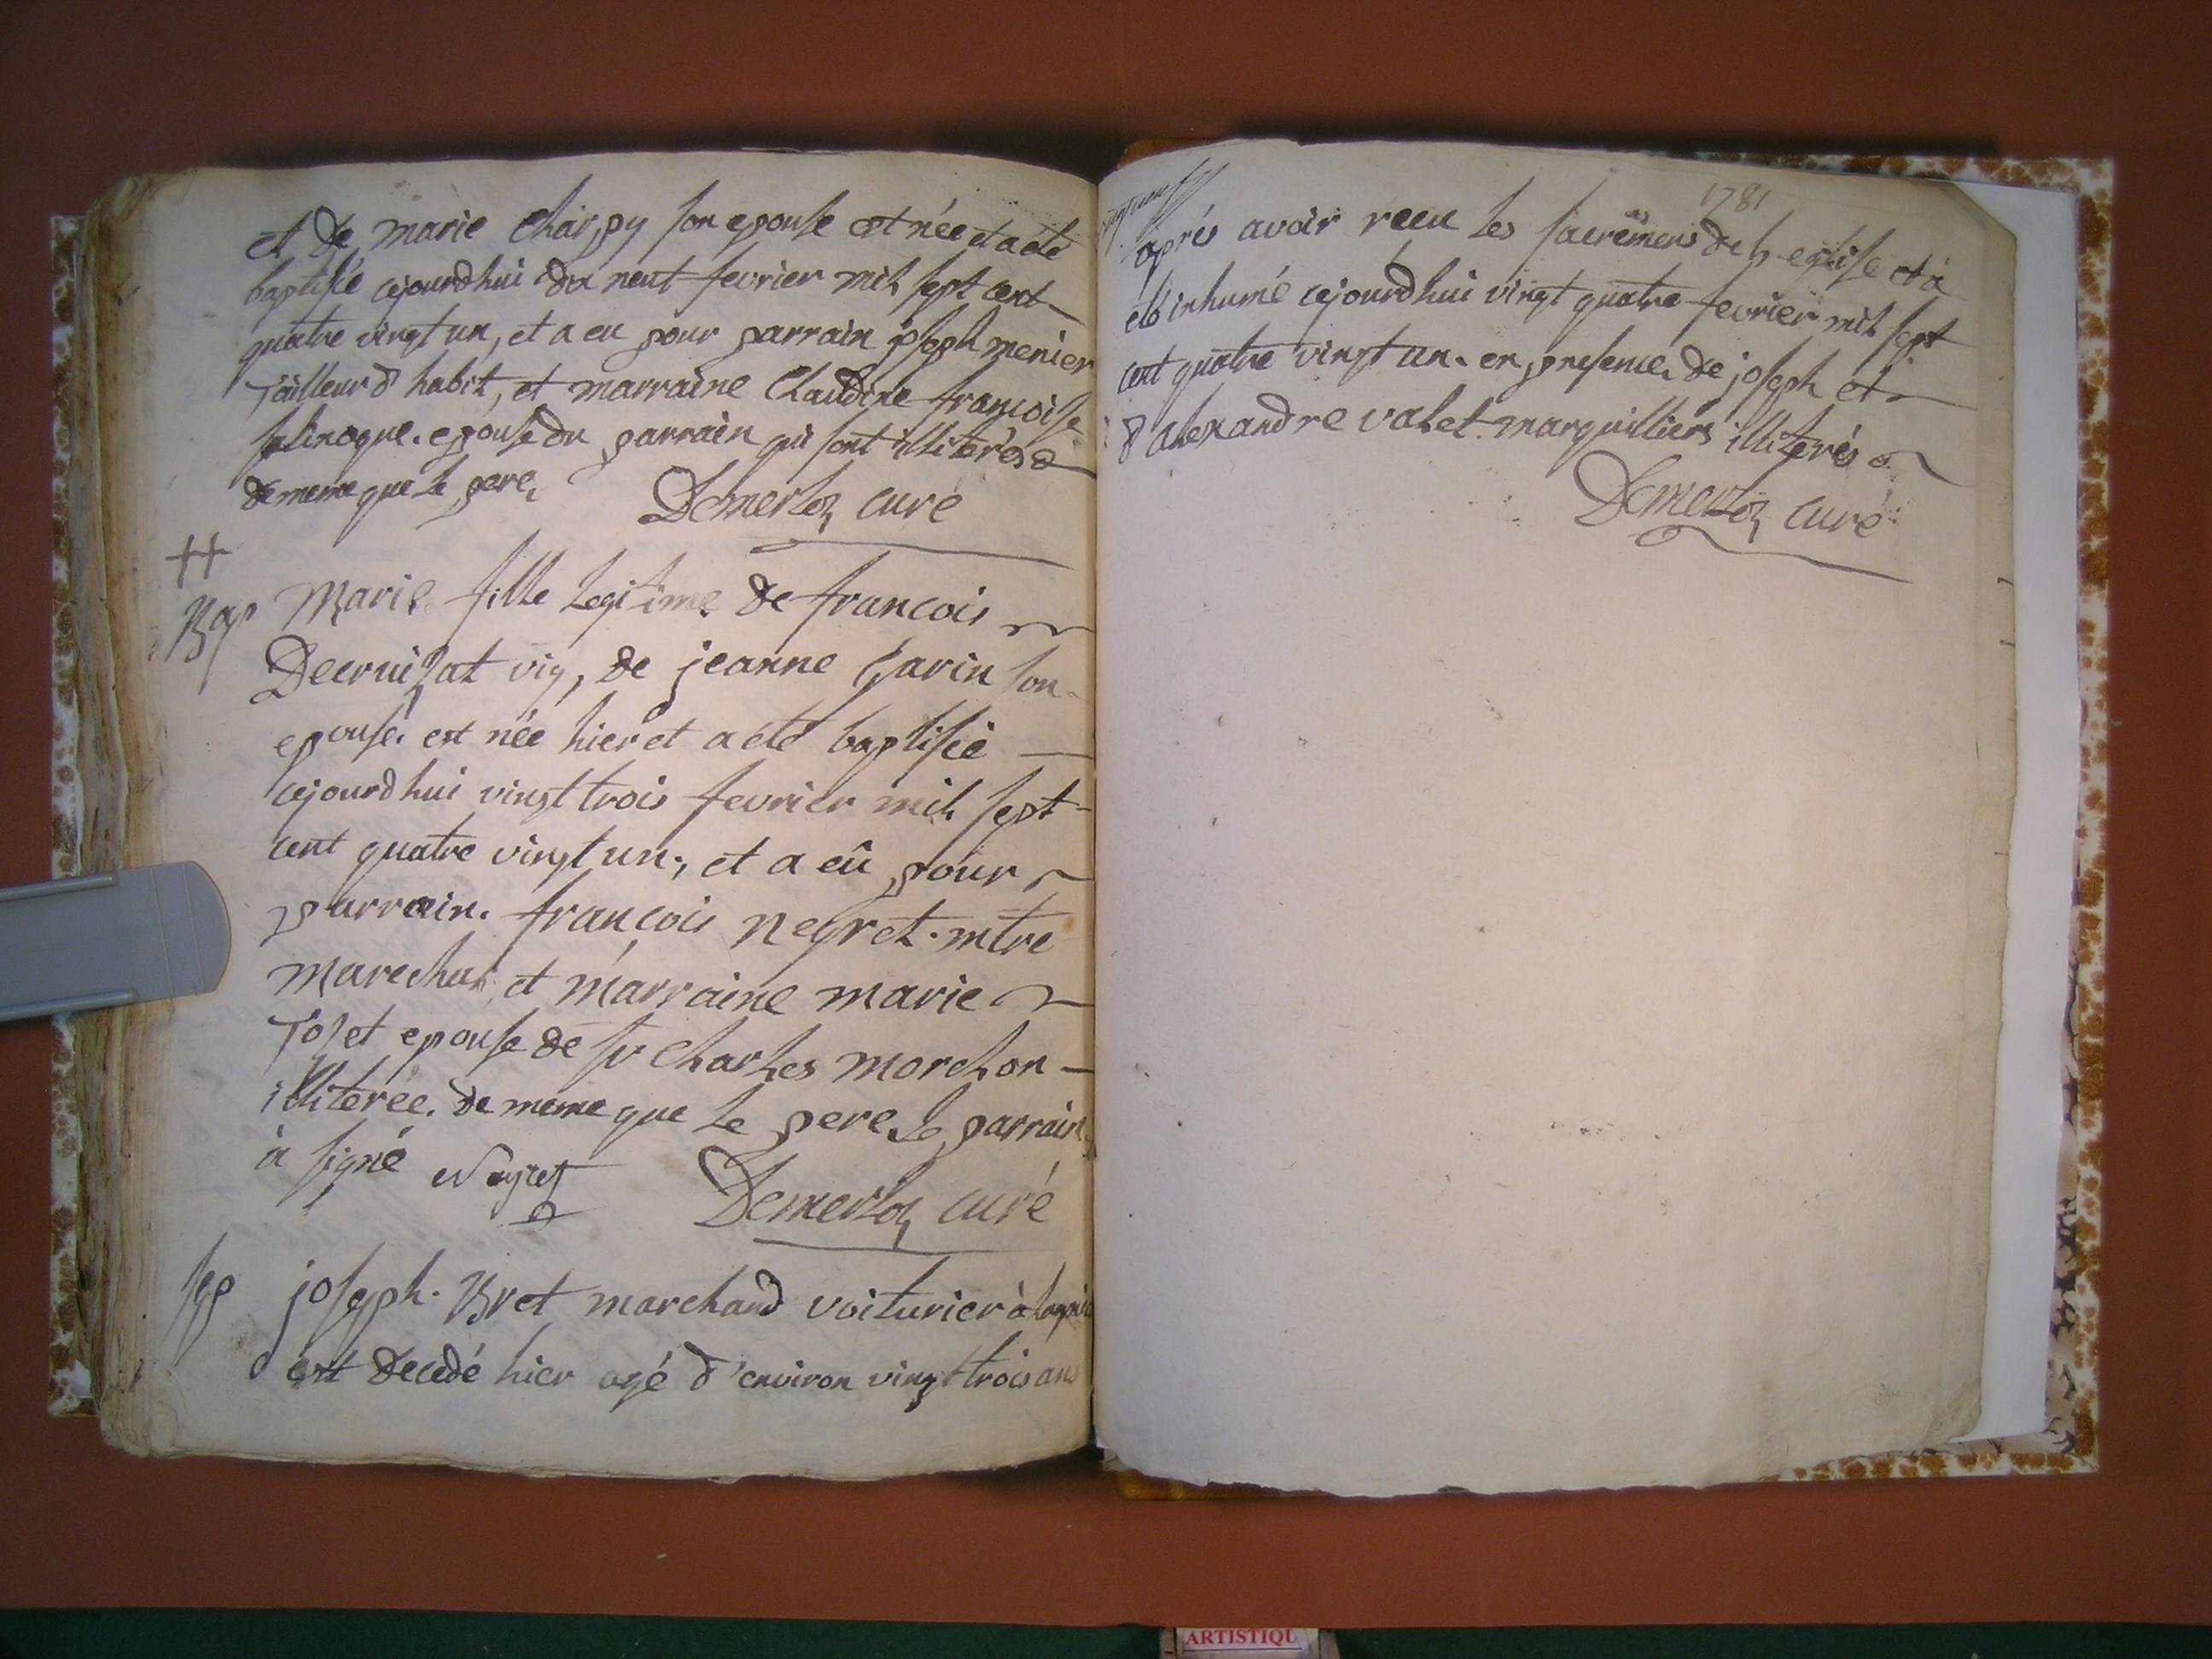 et de marie Charpy son epouse est née et a été
baptisée cejourdhui dix neuf fevrier mil sept cent
quatre vingt un, et a eu pour parrain joseph menier
Tailleur d habit, et marraine Claudine françoise
epouse du parrain qui sont illiterés
de meme que le pere,
Demerloz curé
Bap
Marie fille Legitime de francois
Decruizat vig, de jeanne garin son
epouse est née hier et a été baptisée
cejourdhui vingt trois fevrier mil sept
cent quatre vingt un, et a eû pour
parrain. françois negret. mtre
marechal et marraine marie
epouse de sr Charles morel on
illiterée. de meme que le pere, le parrain
à signé
Demerloz curé
sep
joseph. Bret marchand voiturier à
est decedé hier agé d'environ vingt trois ans
1781
aprés avoir receu les sacremens de l eglise et à
eté inhumé cejourdhui vingt quatre fevrier mil sept
cent quatre vingt un. en presence de joseph et
d alexandre valet marguilliers illiterés
Demerloz curé
ARTISTIQU